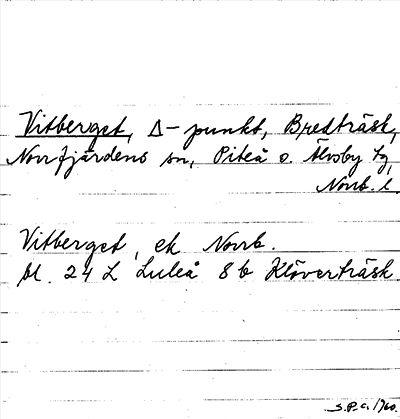 Vitberget, Δ-punkt, Bredträsk,
Norrfjärdens sn, Piteå o. Älvsby tg,
Norrb. l.
Vitberget, ek Norrb.
bl. 24 L Luleå 8 b Klöverträsk
S.P.C. 1960.